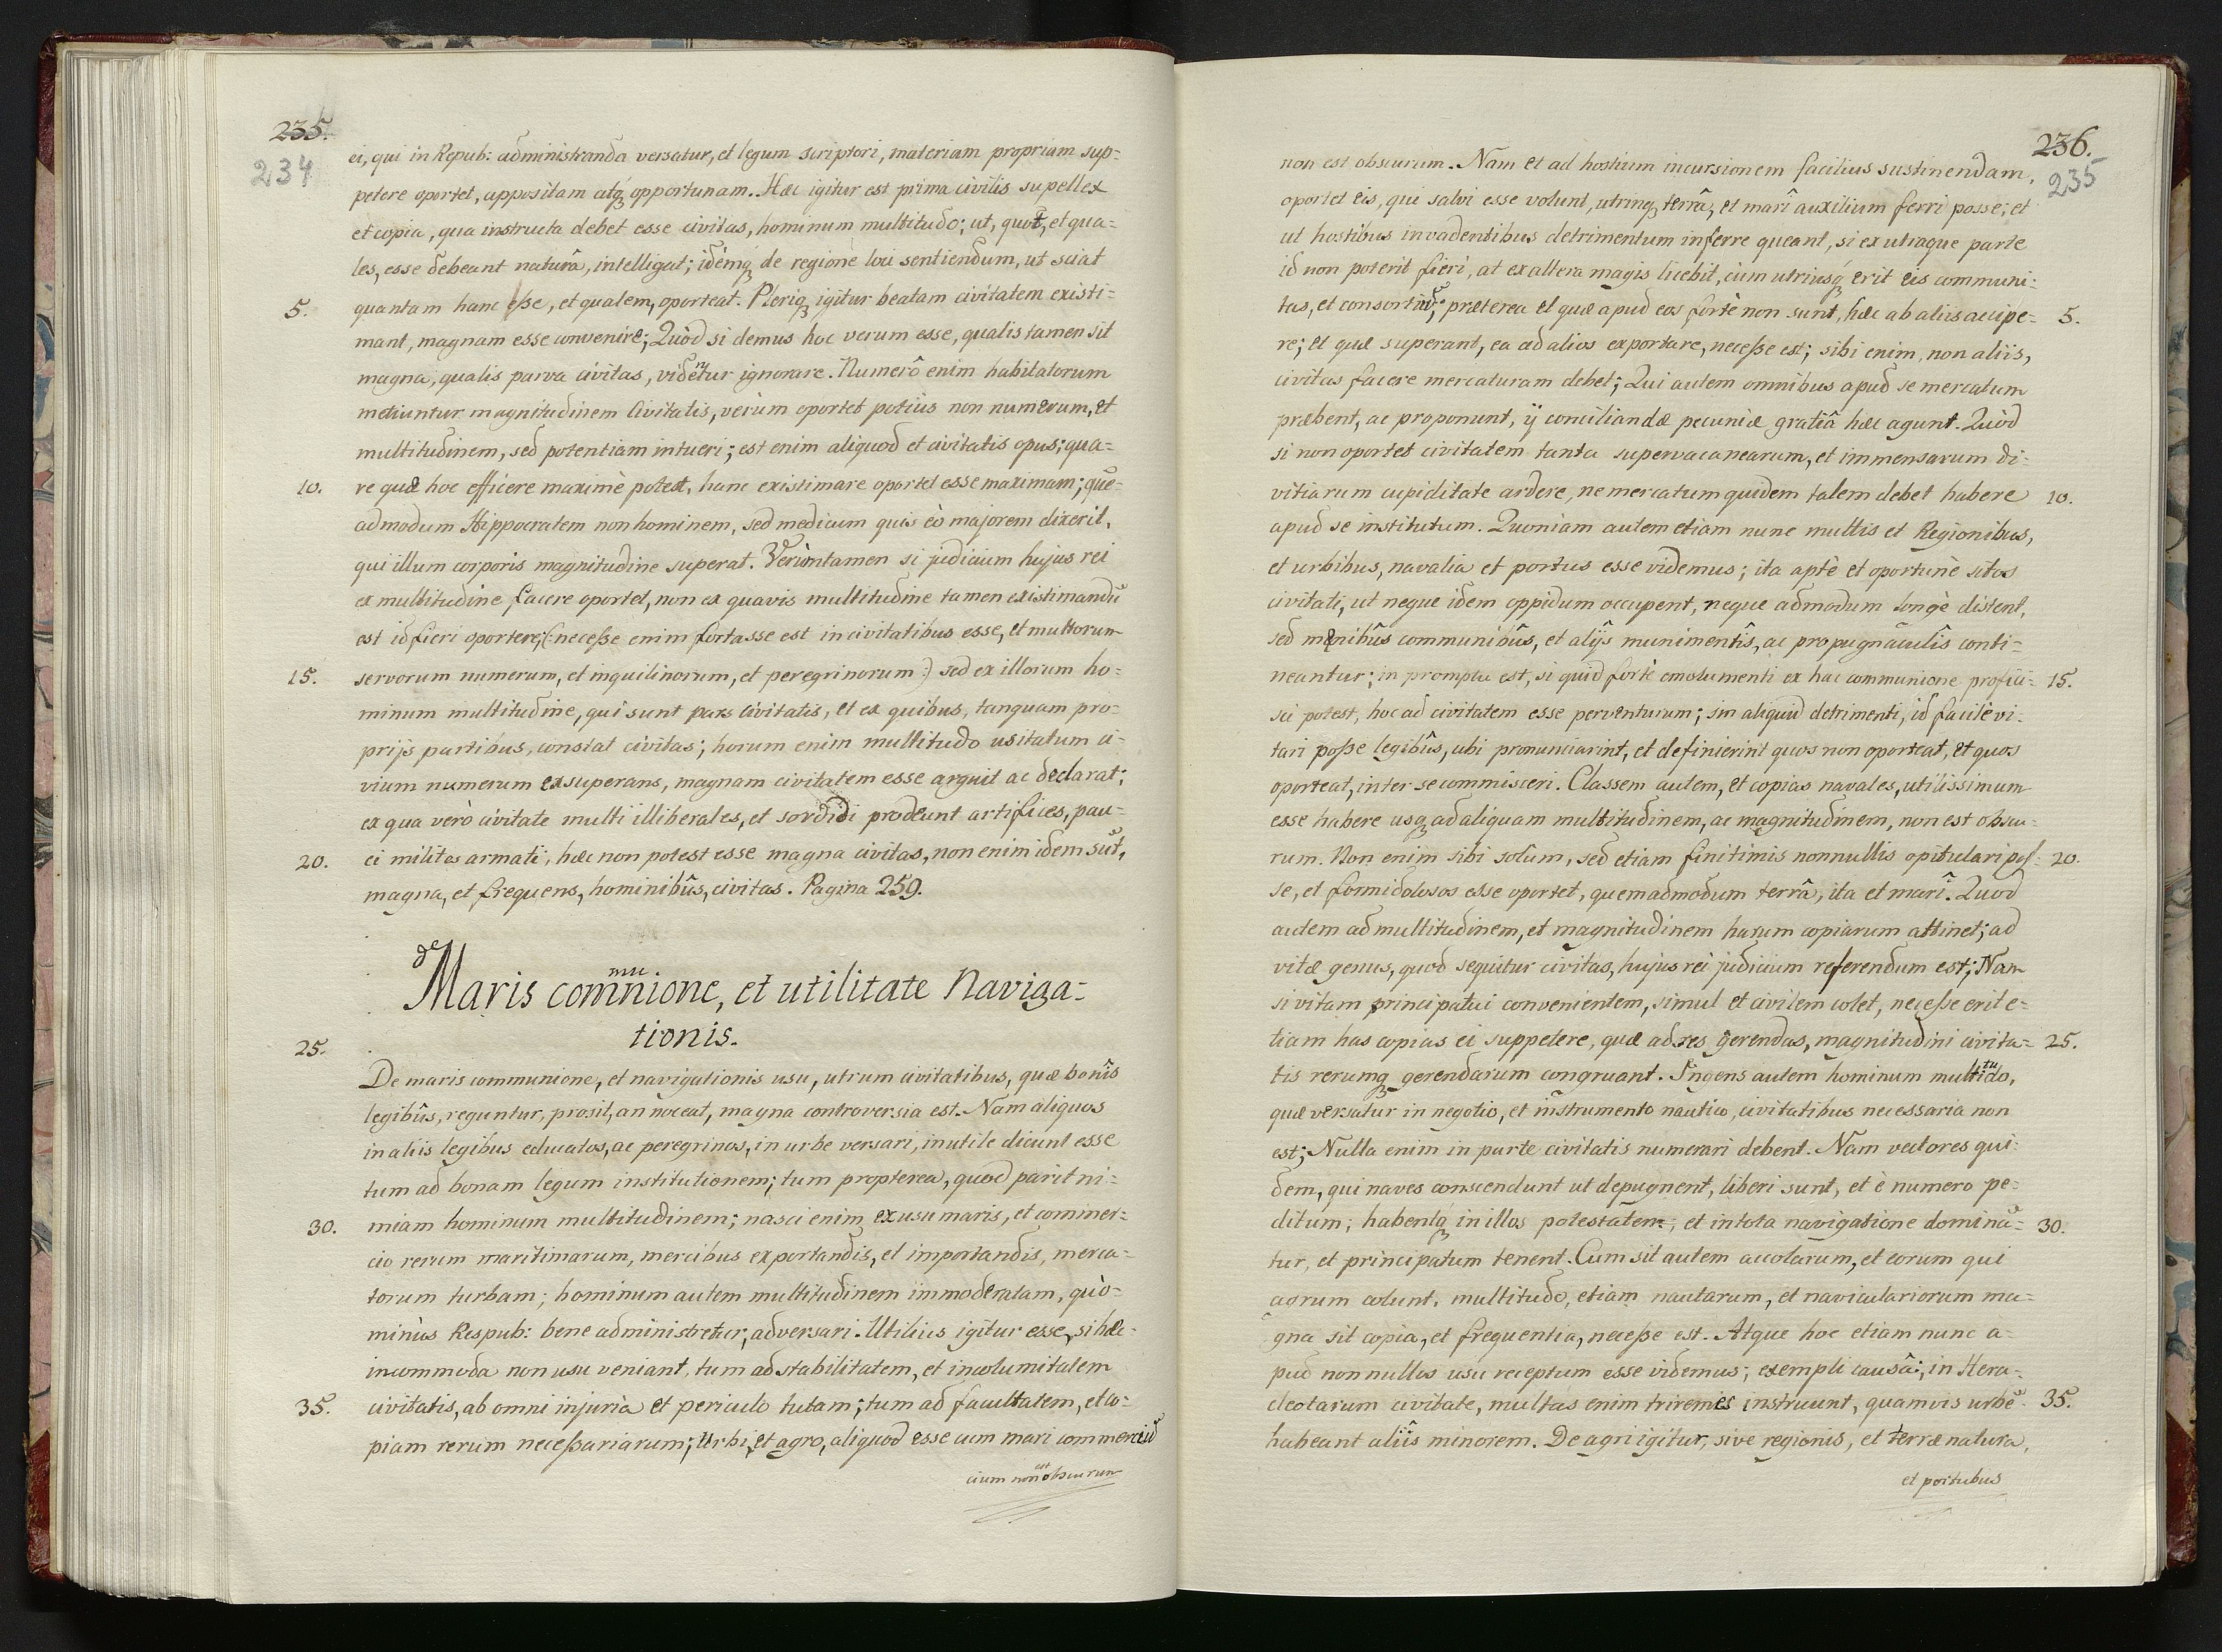 235.
234
ei, qui in Repub: administranda versatur, et legum scriptori, materiam propriam sup=
petere oportet, appositam atq́ꝫ opportunam. Hæc igitur est prima civilis supellex
et copia, qua instructa debet esse civitas, hominum multitudo; ut, quot, et qua=
les, esse debeant naturâ, intelligat; idémqꝫ de regione loci sentiendum, ut sciat
5. quantam hanc esse, et qualem, oporteat. Pleriqꝫ igitur beatam civitatem existi=
mant, magnam esse convenire; Quòd si demus hoc verum esse, qualis tamen sit
magna, qualis parva civitas, videntur ignorare. Numerô enim habitatorum
metiuntur magnitudinem Civitatis, verùm oportet potiùs non numerum, et
multitudinem, sed potentiam intueri; est enim aliquod et civitatis opus; qua=
10. re quæ hoc efficere maximè potest, hanc existimare oportet esse maximam; quē=
admodum Hippocratem non hominem, sed medicum quis eò majorem dixerit,
qui illum corporis magnitudine superat. Verùmtamen si judicium hujus rei
ex multitudine facere oportet, non ex quavis multitudine tamen existimandū
est id fieri oportere; (: necesse enim fortasse est in civitatibus esse, et multorum
15. servorum numerum, et inquilinorum, et peregrinorum :) sed ex illorum ho=
minum multitudine, qui sunt pars Civitatis, et ex quibus, tanquam pro=
prijs partibus, constat civitas; horum enim multitudo usitatum ci=
vium numerum exsuperans, magnam civitatem esse arguit ac declarat;
ex qua verò civitate multi illiberales, et sordidi prodeunt artifices, pau=
20. ci milites armati, hæc non potest esse magna civitas, non enim idem sūt,
magna, et frequens, hominibûs, civitas. Pagina 259.
de
Maris commnione, et utilitate Naviga=
mu
tionis.
25.
De maris communione, et navigationis usu, utrum civitatibus, quæ bonîs
legibûs, reguntur, prosit, an noceat, magna controversia est. Nam aliquos
in aliis legibus educatos, ac peregrinos, in urbe versari, inutile dicunt esse
tum ad bonam legum institutionem; tum propterea, quòd parit ni=
30. miam hominum multitudinem; nasci enim ex usu maris, et commer=
cio rerum maritimarum, mercibus exportandis, et importandis, merca=
torum turbam; hominum autem multitudinem immoderatam, quò=
minùs Respub: bene administretur, adversari. Utilius igitur esse, si hæc
incommoda non usu veniant, tum ad stabilitatem, et incolumitatem
35. civitatis, ab omni injuria et periculo tutam; tum ad facultatem, et co=
piam rerum necessariarum; Urbi, et agro, aliquod esse cum mari commerciū
cium non est obscurum
236.
235
non est obscurum. Nam et ad hostium incursionem facilius sustinendam,
oportet eis, qui salvi esse volunt, utrinqꝫ terrâ, et marî auxilium ferri posse; et
ut hostibus invadentibus detrimentum inferre queant, si ex utraque parte
id non poterit fieri, at ex altera magis licebit, cùm utriusq́ꝫ erit eis communi=
tas, et consortiū; præterea et quæ apud eos fortè non sunt, hæc ab aliis accipe= 5.
re; et quæ superant, ea ad alios exportare, necesse est; sibi enim, non aliis,
civitas facere mercaturam debet; Qui autem omnibus apud se mercatum
præbent, ac proponunt, ij conciliandæ pecuniæ gratiâ hæc agunt. Quòd
si non oportet civitatem tanta supervacanearum, et immensarum di=
vitiarum cupiditate ardere, ne mercatum quidem talem debet habere 10.
apud se institutum. Quoniam autem etiam nunc multis et Regionibus,
et urbibus, navalia et portus esse videmus; ita aptè et oportunè sitos
civitati, ut neque idem oppidum occupent, neque admodum longè distent,
sed mœnibûs communibûs, et alijs munimentîs, ac propugnaculîs conti=
neantur; in promptu est, si quid fortè emolumenti ex hac communione profici= 15.
sci potest, hoc ad civitatem esse perventurum; sin aliquid detrimenti, id facilè vi=
tari posse legibûs, ubi pronunciarint, et definierint quos non oporteat, et quos
oporteat, inter se commisceri. Classem autem, et copias navales, utilissimum
esse habere usqꝫ ad aliquam multitudinem, ac magnitudinem, non est obscu=
rum. Non enim sibi solùm, sed etiam finitimis nonnullis opitulari pos= 20.
se, et formidolosos esse oportet, quemadmodum terrâ, ita et marî. Quod
autem ad multitudinem, et magnitudinem harum copiarum attinet; ad
vitæ genus, quod sequitur civitas, hujus rei judicium referendum est; Nam
si vitam principatui convenientem, simul et civilem colet, necesse erit e=
tiam has copias ei suppetere, quæ ad res gerendas, magnitudini civita= 25.
tis rerumqꝫ gerendarum congruant. Ingens autem hominum multitudo,
quæ versatur in negotio, et instrumento nautico, civitatibus necessaria non
est; Nulla enim in parte civitatis numerari debent. Nam vectores qui=
dem, qui naves conscendunt ut depugnent, liberi sunt, et è numero pe=
ditum; habentq́ꝫ in illos potestatem, et in tota navigatione dominā= 30.
tur, et principatum tenent. Cum sit autem accolarum, et eorum qui
agrum colunt, multitudo, etiam nautarum, et naviculariorum ma=
gna sit copia, et frequentia, necesse est. Atque hoc etiam nunc a=
pud nonnullos usu receptum esse videmus; exempli causâ:, in Hera=
cleotarum civitate, multas enim triremes instruunt, quamvis urbē 35.
habeant aliîs minorem. De agri igitur, sive regionis, et terræ natura,
et portubus